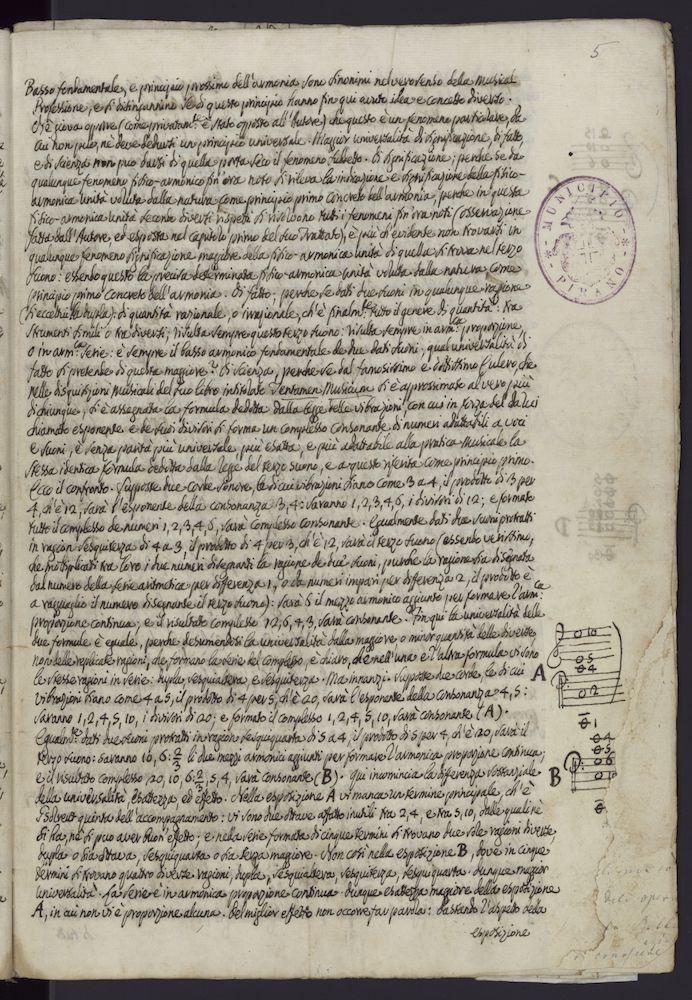 5
Basso fondamentale, e principio prossimo dell'armonia sono sinonimi nel vero senso della Musical
Professione, e si distinguono se di questo principio hanno fin qui avuto idea e concetto diverso.
Nè giova opporre (come privatam.te è stato opposto all'Autore) che questo è un fenomeno particolare, da
cui non può, ne deve dedursi un principio universale. Maggior universalità di significazione, di fatto,
e di scienza non può darsi di quella porta seco il fenomeno suddetto. Di significazione; perchè se da
qualunque fenomeno fisico-armonico fin'ora noto si rileva la indicazione e significazione della fisico-
armonica unità voluta dalla natura come principio primo concreto dell'armonia, perche in questa
fisico-armonica unità secondo diversi rispetti si risolvono tutti i fenomeni fin'ora noti (osservazione
fatta dall'Autore, ed esposta nel capitolo primo del suo Trattato), è più che evidente non trovarsi in
qualunque fenomeno significazione maggiore della fisico-armonica unità di quella si trova nel terzo
suono: essendo questo la precisa determinata fisico-armonica unità voluta dalla natura come
principio primo concreto dell'armonia. Di fatto; perchè se dati due suoni in qualunque ragione
(si eccettui la dupla): di quantità razionale, o irrazionale, ch'è finalm.te tutto il genere di quantità: tra
strumenti simili o tra diversi; risulta sempre questo terzo suono: risulta sempre in arm.ca proporzione,
o in arm.ca serie: è sempre il basso armonico fondamentale de due dati suoni, qual universalità di
fatto si pretende di questa maggiore? Di scienza, perchè se dal famosissimo e dottissimo Eulero, che
nelle disquisizioni Musicali del suo libro intitolato Tentamen Musicum si è approssimato al vero più
di chiunque, si è assegnata la formula dedotta dalla legge delle vibrazioni, con cui in forza del da lui
chiamato esponente e de suoi divisori si forma un complesso consonante di numeri adattabili a voci
e suoni, è senza parità più universale, più esatta, e più adattabile alla pratica Musicale la
stessa identica formula dedotta dalla legge del terzo suono, e a questo riferita come principio primo.
Ecco il confronto. Supposte due corde sonore, le di cui vibrazioni siano come 3 a 4, il prodotto di 3 per
4, ch'è 12, sarà l'esponente della consonanza 3, 4: saranno 1, 2, 3, 4, 6, i divisori di 12; e formato
tutto il complesso de numeri 1, 2, 3, 4, 6, sarà complesso consonante. Egualmente dati due suoni protratti
in ragion sesquiterza di 4 a 3, il prodotto di 4 per 3, ch'è 12, sarà il terzo suono (essendo verissimo,
che moltiplicati tra loro i due numeri disegnanti la ragione de due suoni, purchè la ragione sia disegnata
dai numeri della serie aritmetica per differenza 1, o da numeri impari per differenza 2, il prodotto è
a ragguaglio il numero disegnante il terzo suono): sarà 6 il mezzo armonico aggiunto per formare l'arm.ca
proporzione continua; e il risultato complesso 12, 6, 4, 3, sarà consonante. Fin qui la universalità delle
due formule è eguale, perchè desumendosi la universalità dalla maggiore o minor quantità delle diverse
non delle replicate ragioni, che formano la serie del complesso, è chiaro, che nell'una e l'altra formula vi sono
le stesse ragioni in serie: dupla, sesquialtera, e sesquiterza. Ma innanzi. Supposte due corde, le di cui
vibrazioni siano come 4 a 5, il prodotto di 4 per 5, ch'è 20, sarà l'esponente della consonanza 4, 5:
saranno 1, 2, 4, 5, 10, i divisori di 20; e formato il complesso 1, 2, 4, 5, 10, sarà consonante (A).
Egualm.te dati due suoni protratti in ragion sesquiquarta di 5 a 4, il prodotto di 5 per 4, ch'è 20, sarà il
terzo suono: saranno 10, 6 2/3 li due mezzi armonici aggiunti per formare l'armonica proporzione continua;
e il risultato complesso 20, 10, 6 2/3, 5, 4, sarà consonante (B). Qui incomincia la differenza sostanziale
della universalità, esattezza, ed effetto. Nella esposizione A vi manca un termine principale, ch'è
l'ottava quinta dell'accompagnamento: vi sono due ottave affatto inutili tra 2, 4, e tra 5, 10, dalle quali nè
si ha, nè si può aver buon effetto; e nella serie formata di cinque termini si trovano due sole ragioni diverse,
dupla o sia ottava, sesquiquarta o sia terza maggiore. Non così nella esposizione B, dove in cinque
termini si trovano quattro diverse ragioni, dupla, sesquialtera, sesquiterza, sesquiquarta. Dunque maggior
universalità. La serie è in armonica proporzione continua. Dunque esattezza maggiore della esposizione
A, in cui non vi è proporzione alcuna. Del miglior effetto non occorre far parola: bastando l'aspetto della
esposizione
MUNICIPIO
PIRANO
A
10
5
4
2
1
B
4
5
6
10